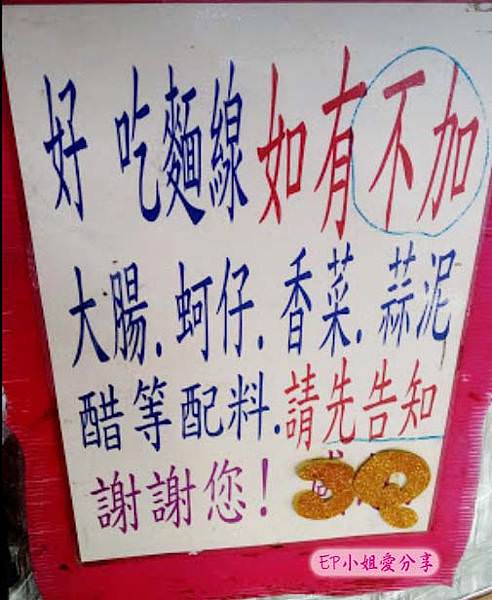 好吃麵線如有不加
大腸.蚵仔.香菜.蒜泥
醋等配料.請先告知
謝謝您!
3Q
EP小姐愛分享